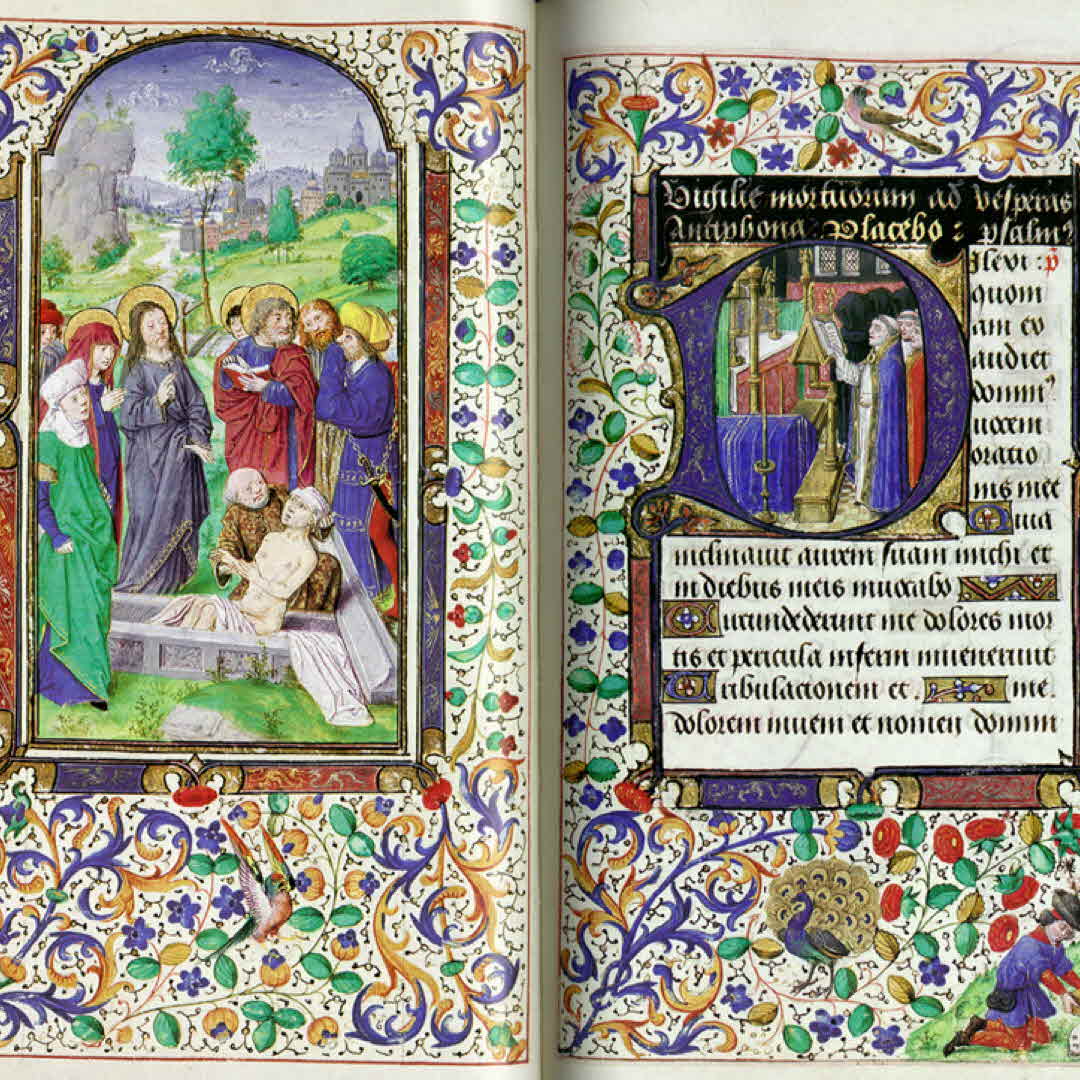 Vigilie mortuorum ad vesperas
Antiphona: Placebo: psalm9
Dilexi: p
quom
iam ex
audiet
domin9
vocem
oratio
nis mee
Quia
inclinavit aurem suam michi et
in diebus meis invocabo
Circumdederunt me dolores mor
tis et pericula inferni invenerunt
Tribulacionem et . me.
dolorem inveni et nomen domini